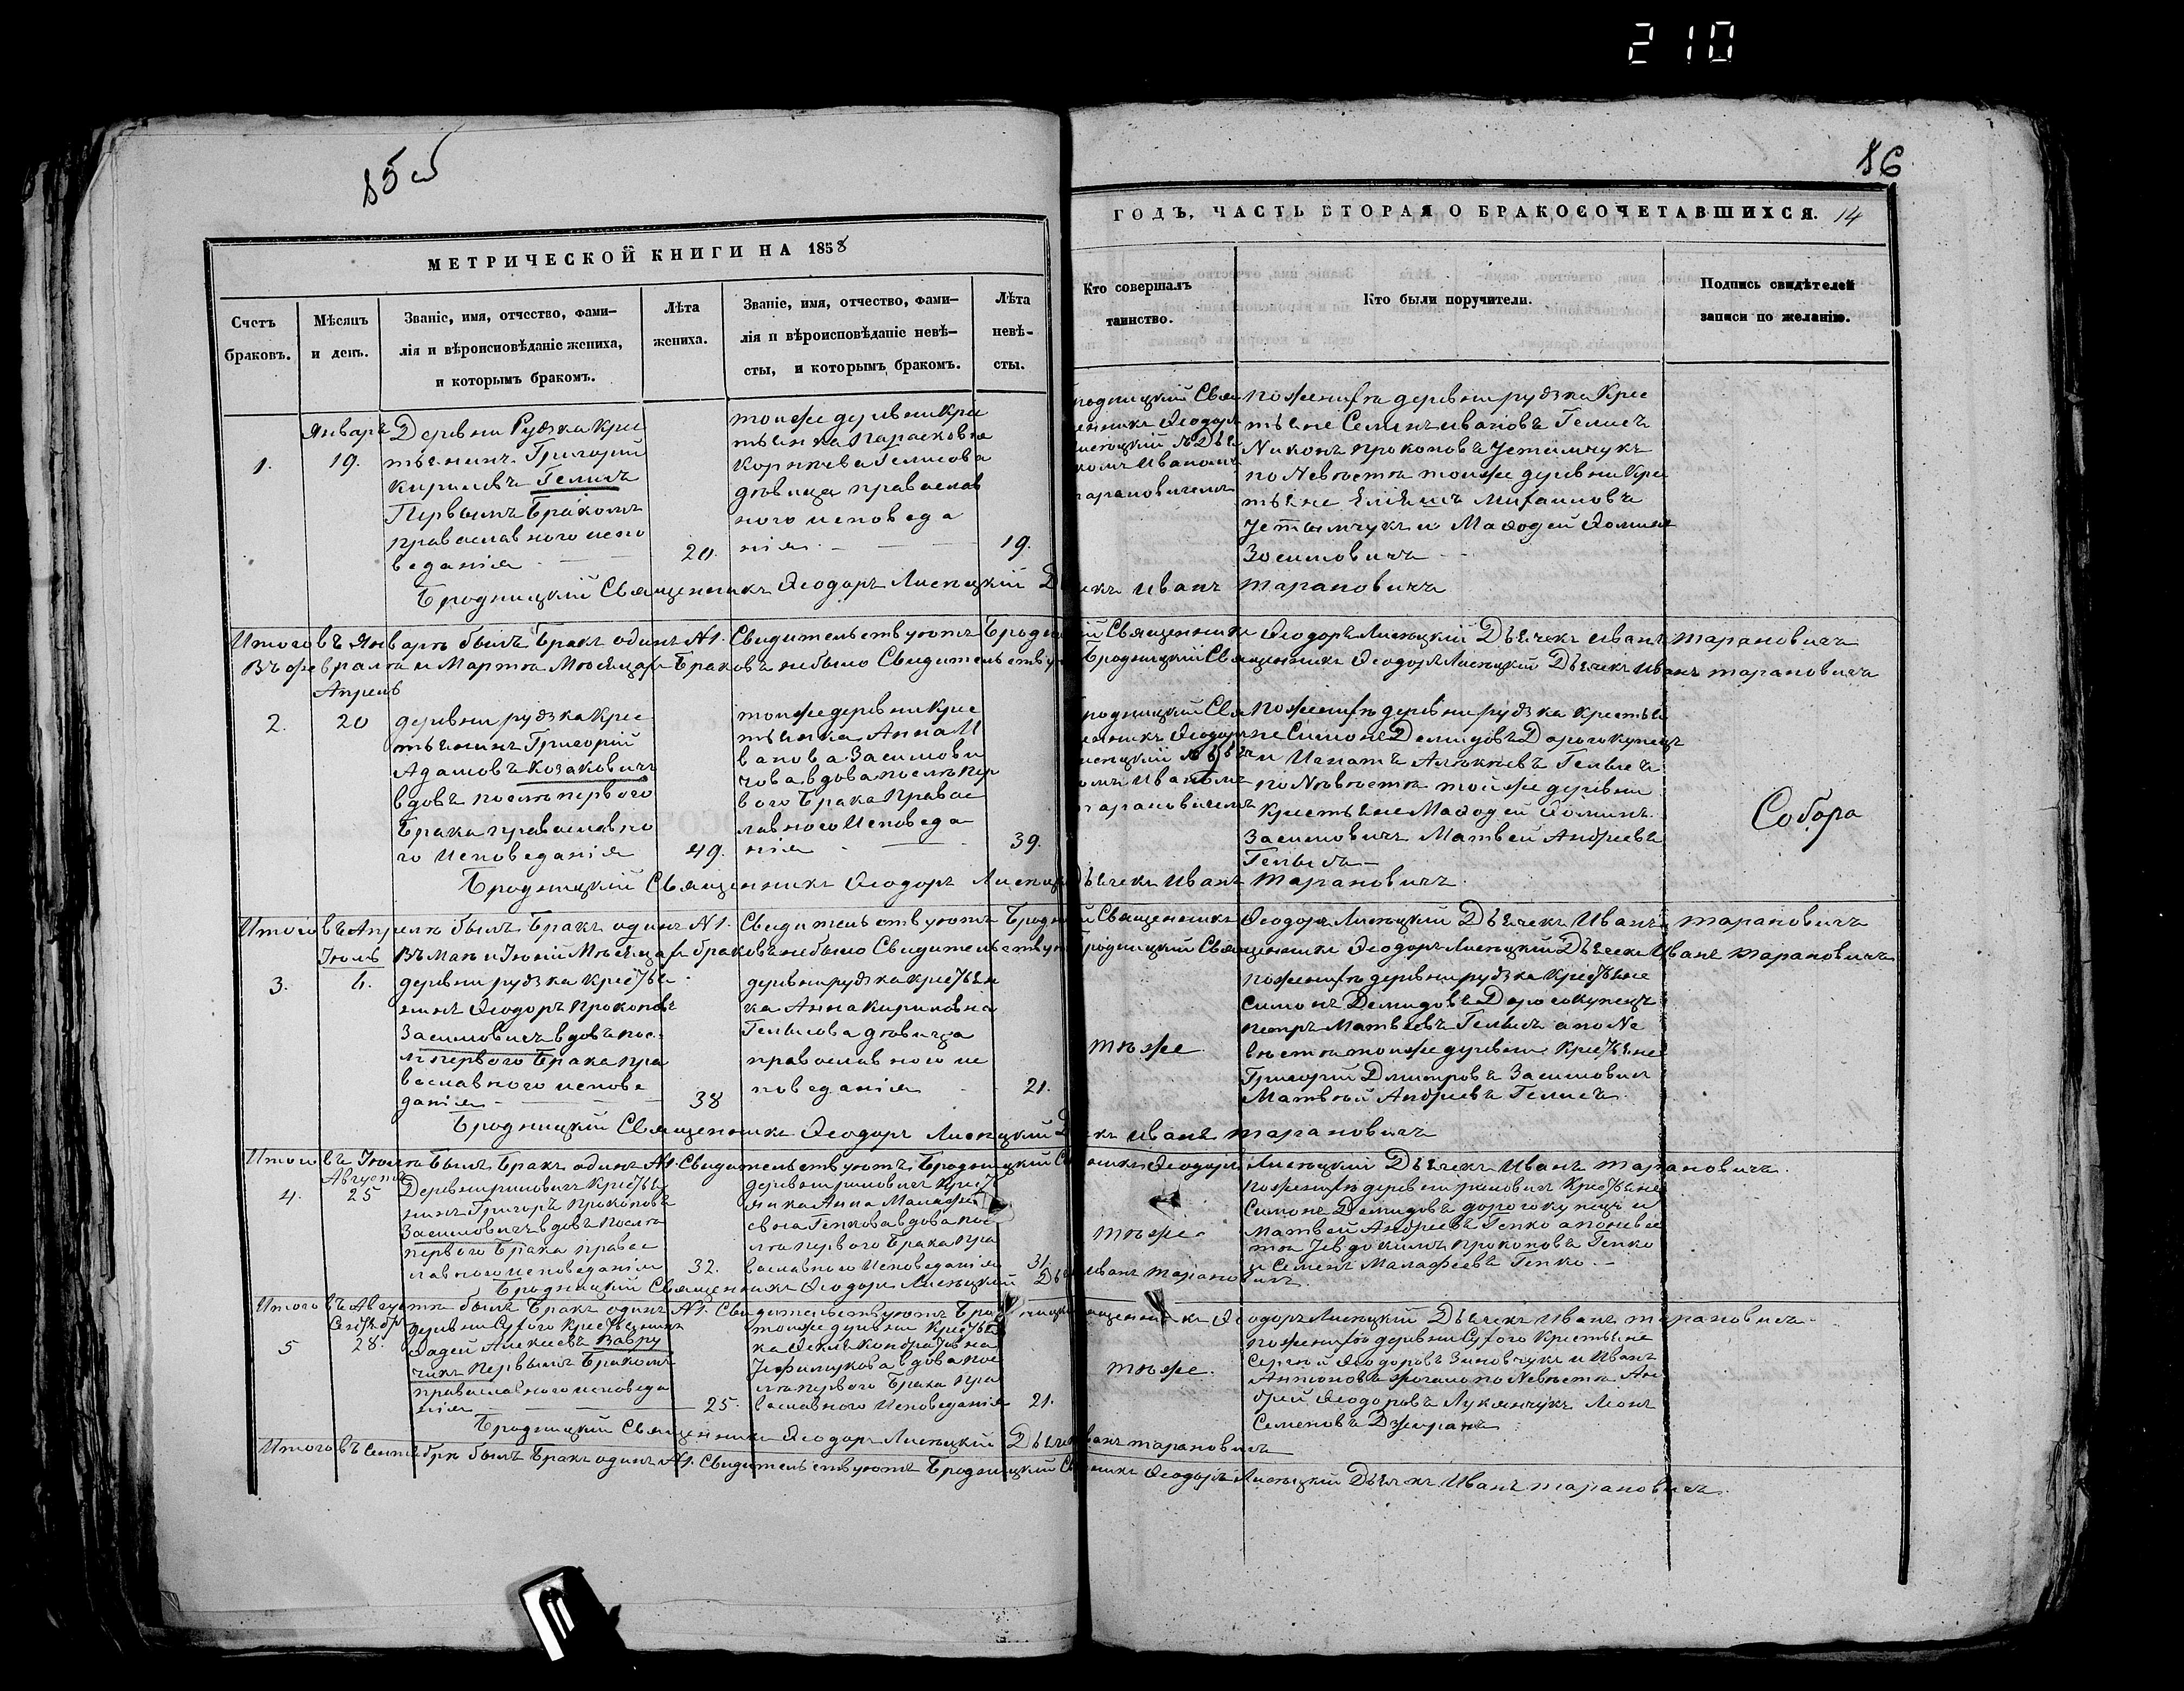 210
85 об
86
МЕТРИЧЕСКОЙ КНИГИ НА 1858
ГОДЪ, ЧАСТЬ ВТОРАЯ О БРАКОСОЧЕТАВШИХСЯ. 14
Счетъ
браковъ.
Мѣсяцъ
и день.
Званіе, имя, отчество, фами-
лія и вѣроисповѣданіе жениха,
и которымъ бракомъ.
Лѣта
жениха.
Званіе, имя, отчество, фами-
лія и вѣроисповѣданіе невѣ-
сты, и которымъ бракомъ.
Лѣта
невѣ-
сты.
Кто совершалъ
таинство.
Кто были поручители.
Подпись свидѣтелей
записи по желанію.
1.
Январь
19.
Деревни Рудзка Крес
тьянинъ Григорій
Кириловъ Геличъ
Первымъ Бракомъ
православного испо
веданія
20.
тойже деревни Крес
тьянка Парасковия
Корнѣева Гелисова
дѣвица православ
ного исповеда
нія
19.
родницкій Свя
енникъ Ѳеодоръ
комъ Иваномъ
тарановичемъ
по женихѣ деревни рудзка Крес
тьяне Семенъ ивановъ Гелисъ
Никонъ прокоповъ Устимчукъ
по Невѣстѣ тойже деревни Кре
стьяне
Устымчукъ и Маѳодей Ѳомичъ
Зосимовичъ
Бродницкій Священникъ Ѳеодоръ Лисецкій Дьячекъ Иванъ Тарановичъ
Итого въ Январѣ былъ Бракъ одинъ №1. Свидительствуютъ Бродницкій Священникъ Ѳеодоръ Лисецкій Дьячекъ Иванъ тарановичъ
Въ февралѣ и Мартѣ Мѣсяцах Браковъ небыло Свидительствую Бродницкій Священникъ Ѳеодоръ Лисецкій Дьячекъ Иванъ тарановичъ
2.
Апрель
20
деревни рудзка Крес
тьянинъ Григорій
Адамовъ Козаковичъ
вдовъ послѣ первого
Брака православно
го Исповеданія
49.
тойже деревни Крес
тьянка Анна И
ванова Засимови
чова вдова послѣ пер
вого Брака Правос
лавного Исповеда
нія
39.
родницкій Свя
енникъ Ѳеодоръ
омъ Иваномъ
тарановичемъ
По женихѣ деревни рудзка крестья
не Симонъ Демидовъ Дорогокупецъ
и Игнатъ
по Невѣстѣ тойже деревни
Крестьяне Маѳодей Ѳоминъ
Засимовичъ Матвей Андреевъ
Гельисъ
Собора
Бродницкій Священникъ Ѳеодоръ Лисецкій Дьячекъ Иванъ Тарановичъ
Итого въ Апрелѣ былъ Бракъ одинъ №1. Свидительствуютъ Бродницкій Священникъ Ѳеодоръ Лисецкій Дьячекъ Иванъ тарановичъ
Въ Маѣ и Іюній Мѣсяцах браковъ небыло Свидительствую Бродницкій Священникъ Ѳеодоръ Лисецкій Дьячекъ Иванъ тарановичъ
3.
Іюль
6.
деревни рудзка крестья
нинъ Ѳеодоръ прокоповъ
Засимовичъ вдовъ пос-
лѣ первого Брака пра
вославного испове
данія
38
деревни рудзка крестьян
ка Анна Кириловна
Гельисова дѣвица
православного ис
поведанія
21.
тѣже
по женихѣ деревни рудзка Крестьяне
Симонъ Демидовъ Дорогокупецъ
петръ Матвеевъ Гельисъ а по Не
вѣстѣ тойже деревни Крестьяне
Григорій Дмитровъ Засимовичъ
Матвѣй Андреевъ Гелисъ
Бродницкій Священникъ Ѳеодоръ Лисецкій Дьячекъ Иванъ тарановичъ
Итого въ Іюлѣ Былъ Бракъ одинъ №1. Свидительствуютъ Бродницкій Священникъ Ѳеодоръ Лисецкій Дьячекъ Иванъ тарановичъ.
4.
Августъ
25
Деревни риповичъ Крестья
нинъ Григоръ Прокоповъ
Засимовичъ вдовъ послѣ
первого Брака правос
лавного исповеданія
32.
деревни риповичъ Крест
янка Анна Малафе
евна Гепкова вдова пос
лѣ первого Брака пра
вославного Исповеданія
31.
тѣже
по женихѣ деревни риповичъ Крестьяне
Симонъ Демидовъ дорогокупецъ и
Матвей Андреевъ Гепко а по невес
тѣ Јевдокимъ прокоповъ Гепко
и Семенъ Малафеевъ Гепко.
Бродницкій Священникъ Ѳеодоръ Лисецкій Дьячекъ Иванъ тарановичъ.
Итого въ Августѣ былъ Бракъ одинъ №1. Свидительствуютъ Бродницкій Священникъ Ѳеодоръ Лисецкій Дьячекъ Иванъ тарановичъ.
5
Сентябрь
28.
деревни Сухого Крестьянинъ
Фадей Алексеевъ Вавру
чикъ Первымъ Бракомъ
православного исповеда
нія
25.
тойже деревни Крестьян
ка Ѳекла Кондратовна
Јефимукова вдова пос
лѣ первого Брака пра
вославного Исповеданія
21.
тѣже.
по женихѣ деревни Сухого Крестьяне
Сергѣй Ѳеодоровъ Зиновчукъ и Иванъ
Антоновъ по Невѣстѣ Ан
дрей Ѳеодоровъ Лукянчукъ Леонъ
Семеновъ
Бродницкій Священникъ Ѳеодоръ Лисецкій Дьячекъ Иванъ тарановичъ
Итого въ Сентябрѣ былъ Бракъ одинъ №1. Свидительствуютъ Бродницкій Священникъ Ѳеодоръ Лисецкій Дьячекъ Иванъ тарановичъ.